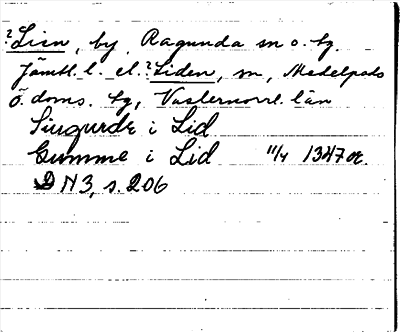 ?Lien, by, Ragunda sn o. tg.
Jämtl. l. el. ?Liden, sn, Medelpads
ö. doms. tg, Västernorrl. län
Siugurde i Lid
Gumme i Lid 11/4 1347 or.
DN 3, s. 206